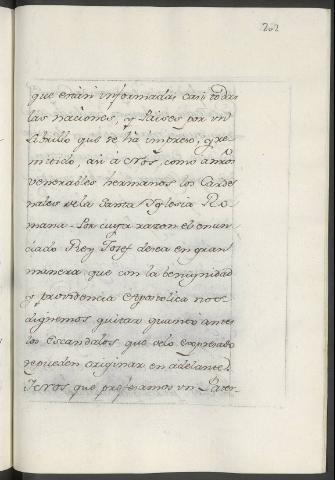 202
que están informadas casi todas
las naciones, y Paises por un
Librillo que se ha impreso, y re-
mitido, asi a Nos, como a nros
venerables hermanos los Carde-
nales de la Santa Yglesia Ro-
mana. Por cuya razon el enun-
ciado Rey Josef desea en gran
manera que con la benignidad
y providencia Apostolica nos
dignemos quitar quanto antes
los escandalos que delo expresado
se pueden originar en adelante.
Y Nos que profesamos un Pater-